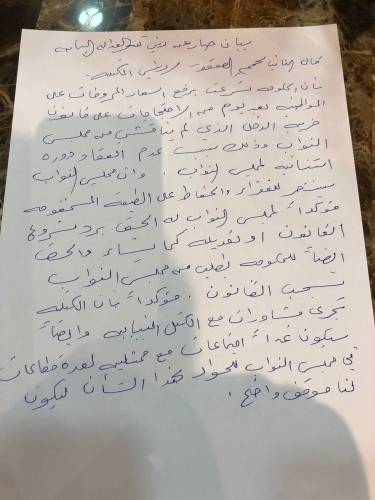 بيان صادر عن رئيس كتلة العدالة النيابية
قال النائب مجحم الصقور رئيس الكتلة:
بأن الحكومة تسرعت برفع اسعار المحروقات على
المواطنين بعد يوم من الاحتجاجات على قانون
ضريبة الدخل الذي لم يناقش من مجلس
النواب وذلك بسبب عدم انعقاد دورة
استثنائية لمجلس النواب. وان مجلس النواب
سينتصر للفقراء والحفاظ على الطبقة المسحوقه
مؤكداً لمجلس النواب له الحق برد مشروع
القانون او تعديله كما يشاء والحق
ايضاً للحكومه بطلب من مجلس النواب
بسحب القانون. مؤكداً بأن الكتله
تجري مشاورات مع الكتل النيابيه وايضاً
سيكون غداً اجتماعات مع ممثلين لعدة قطاعات
في مجلس النواب للحوار بهذا الشأن ليكون
لنا موقف واضح.